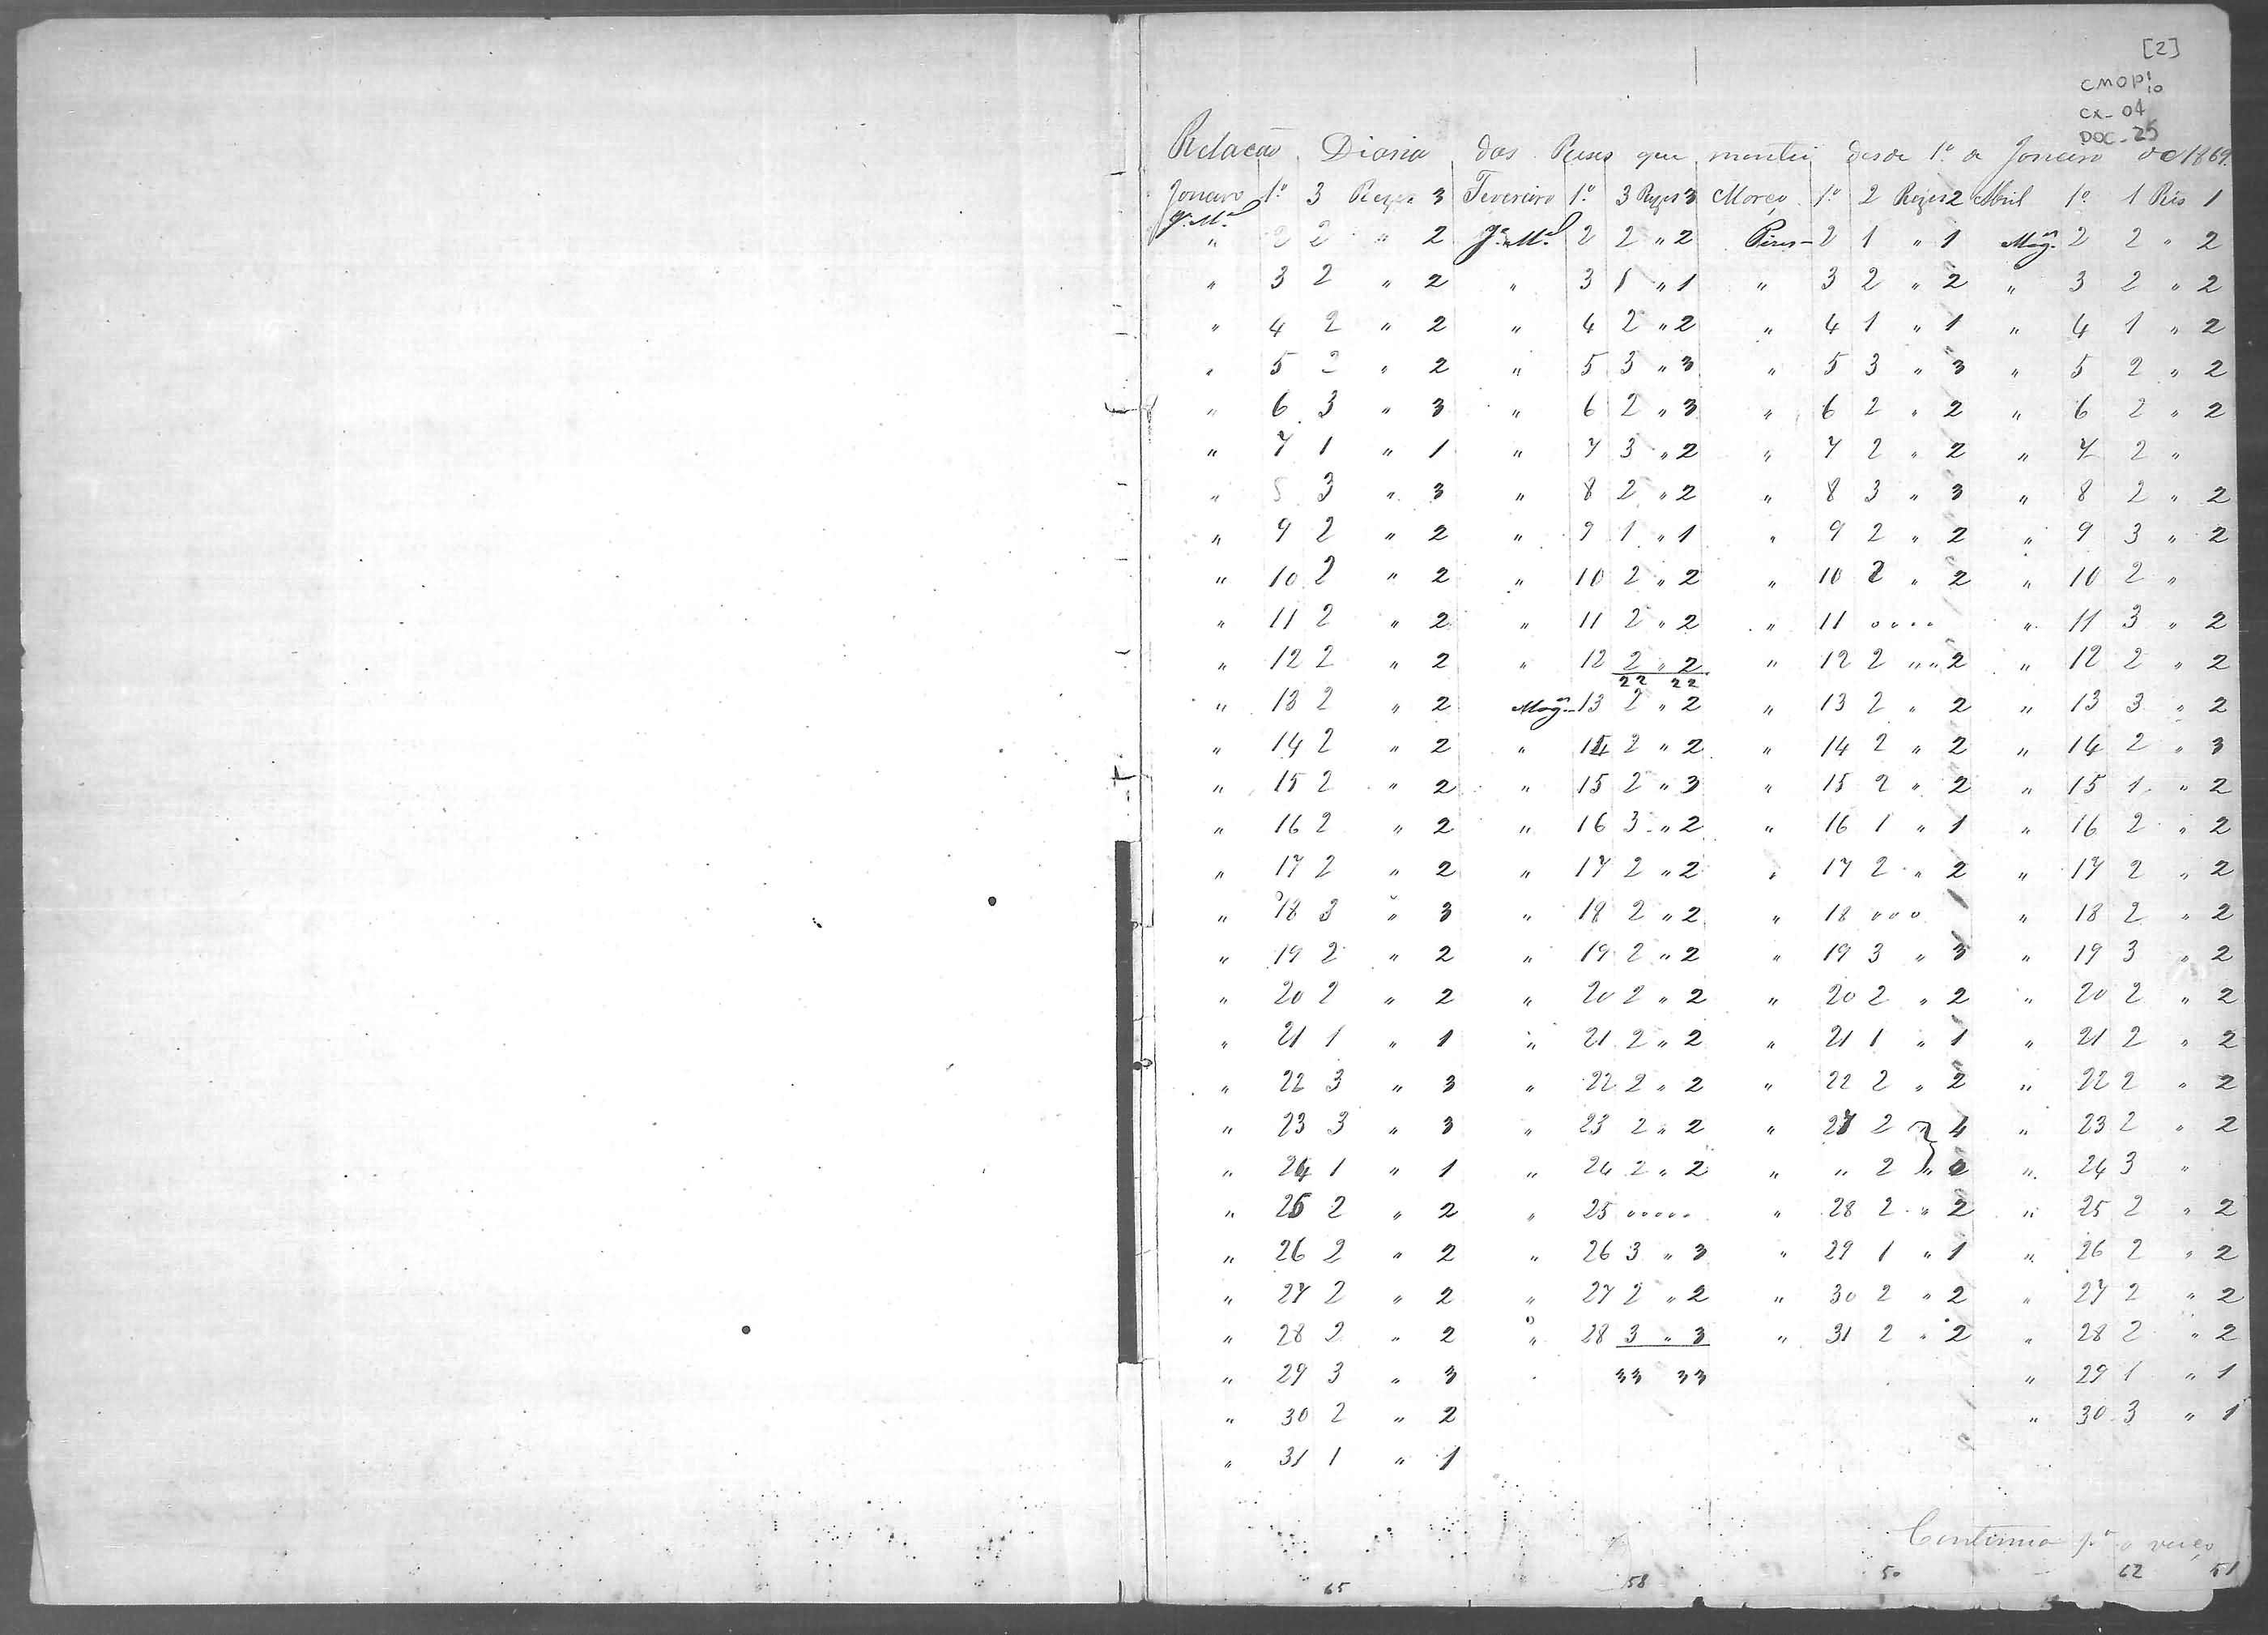 [2]
CMOP 10
CX-04
DOC-25
Relação Diaria das Reses que mentei desde 1.º de Janeiro de 1869.
Janeiro 1.º 3 Rezes 3 Fevereiro 1.º 3 Rezes 3 Março 1.º 2 Rezes 2 Abril 1.º 1 Rês 1
J.e M.el " 2 2 " 2 J.e M.el 2 2 " 2 Pires - 2 1 " 1 Mag. 2 2 " 2
" 3 2 " 2 " 3 1 " 1 " 3 2 " 2 " 3 2 " 2
" 4 2 " 2 " 4 2 " 2 " 4 1 " 1 " 4 1 " 2
" 5 2 " 2 " 5 3 " 3 " 5 3 " 3 " 5 2 " 2
" 6 3 " 3 " 6 2 " 3 " 6 2 " 2 " 6 2 " 2
" 7 1 " 1 " 7 3 " 2 " 7 2 " 2 " 7 2 "
" 8 3 " 3 " 8 2 " 2 " 8 3 " 3 " 8 2 " 2
" 9 2 " 2 " 9 1 " 1 " 9 2 " 2 " 9 3 " 2
" 10 2 " 2 " 10 2 " 2 " 10 2 " 2 " 10 2 "
" 11 2 " 2 " 11 2 " 2 " 11 " " " 11 3 " 2
" 12 2 " 2 " 12 2 " 2 " 12 2 " " 2 " 12 2 " 2
22 22
" 13 2 " 2 Mag. 13 2 " 2 " 13 2 " 2 " 13 3 " 2
" 14 2 " 2 " 14 2 " 2 " 14 2 " 2 " 14 2 " 3
" 15 2 " 2 " 15 2 " 3 " 15 2 " 2 " 15 1 " 2
" 16 2 " 2 " 16 3 " 2 " 16 1 " 1 " 16 2 " 2
" 17 2 " 2 " 17 2 " 2 " 17 2 " 2 " 17 2 " 2
" 18 3 " 3 " 18 2 " 2 " 18 " " " 18 2 " 2
" 19 2 " 2 " 19 2 " 2 " 19 3 " 3 " 19 3 " 2
" 20 2 " 2 " 20 2 " 2 " 20 2 " 2 " 20 2 " 2
" 21 1 " 1 " 21 2 " 2 " 21 1 " 1 " 21 2 " 2
" 22 3 " 3 " 22 2 " 2 " 22 2 " 2 " 22 2 " 2
" 23 3 " 3 " 23 2 " 2 " 27 2 } 4 " 23 2 " 2
" 24 1 " 1 " 24 2 " 2 " " 2 " 0 " 24 3 "
" 25 2 " 2 " 25 " " " 28 2 " 2 " 25 2 " 2
" 26 2 " 2 " 26 3 " 3 " 29 1 " 1 " 26 2 " 2
" 27 2 " 2 " 27 2 " 2 " 30 2 " 2 " 27 2 " 2
" 28 2 " 2 " 28 3 " 3 " 31 2 " 2 " 28 2 " 2
" 29 3 " 3 33 33 " 29 1 " 1
" 30 2 " 2 " 30 3 " 1
" 31 1 " 1
Continua p.a o verço
65 58 50 62 51